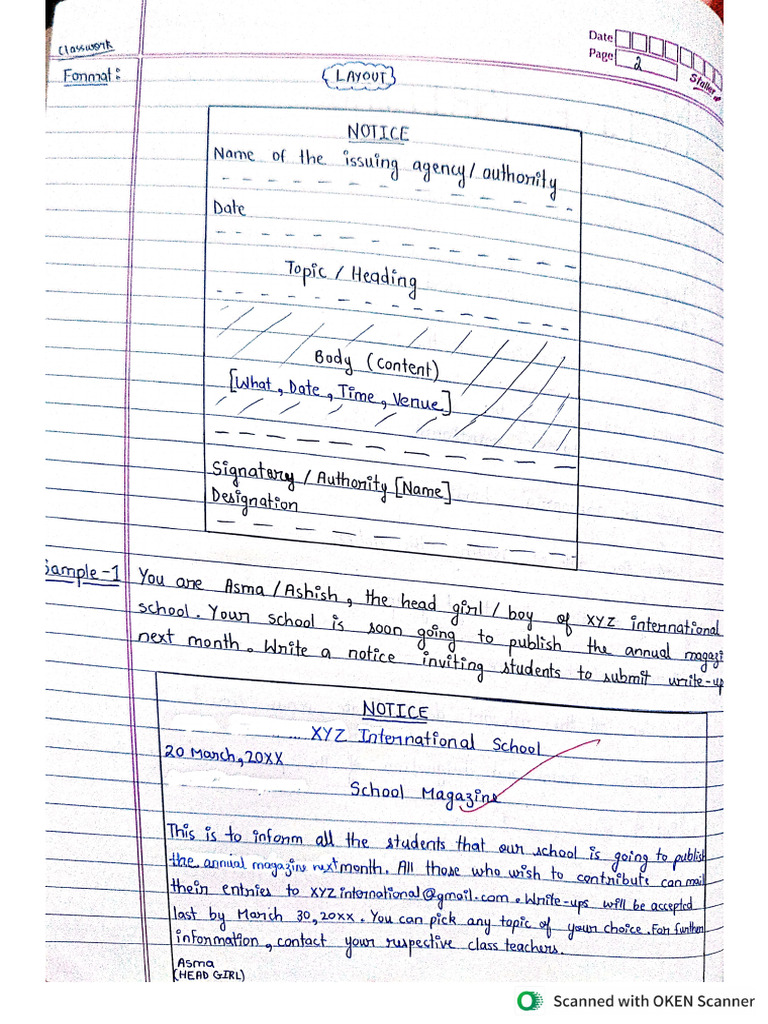 Classwork
Date
Page 2
Format:
LAYOUT
NOTICE
Name of the issuing agency/authority
Date
Topic / Heading
Body (content)
[What, Date, Time, Venue]
Signatery / Authority [Name]
Designation
Sample-1
You are Asma/Ashish, the head girl/boy of XYZ international
school. Your school is soon going to publish the annual magazi
next month. Write a notice inviting students to submit write-up
NOTICE
... XYZ International School
20 March, 20XX
School Magazine
This is to inform all the students that our school is going to publish
the annual magazine next month. All those who wish to contribute can mail
their entries to XYZinternational@gmail.com. Write-ups will be accepted
last by March 30, 20xx. You can pick any topic of your choice. For further
information, contact your respective class teachers.
Asma
(HEAD GIRL)
Scanned with OKEN Scanner